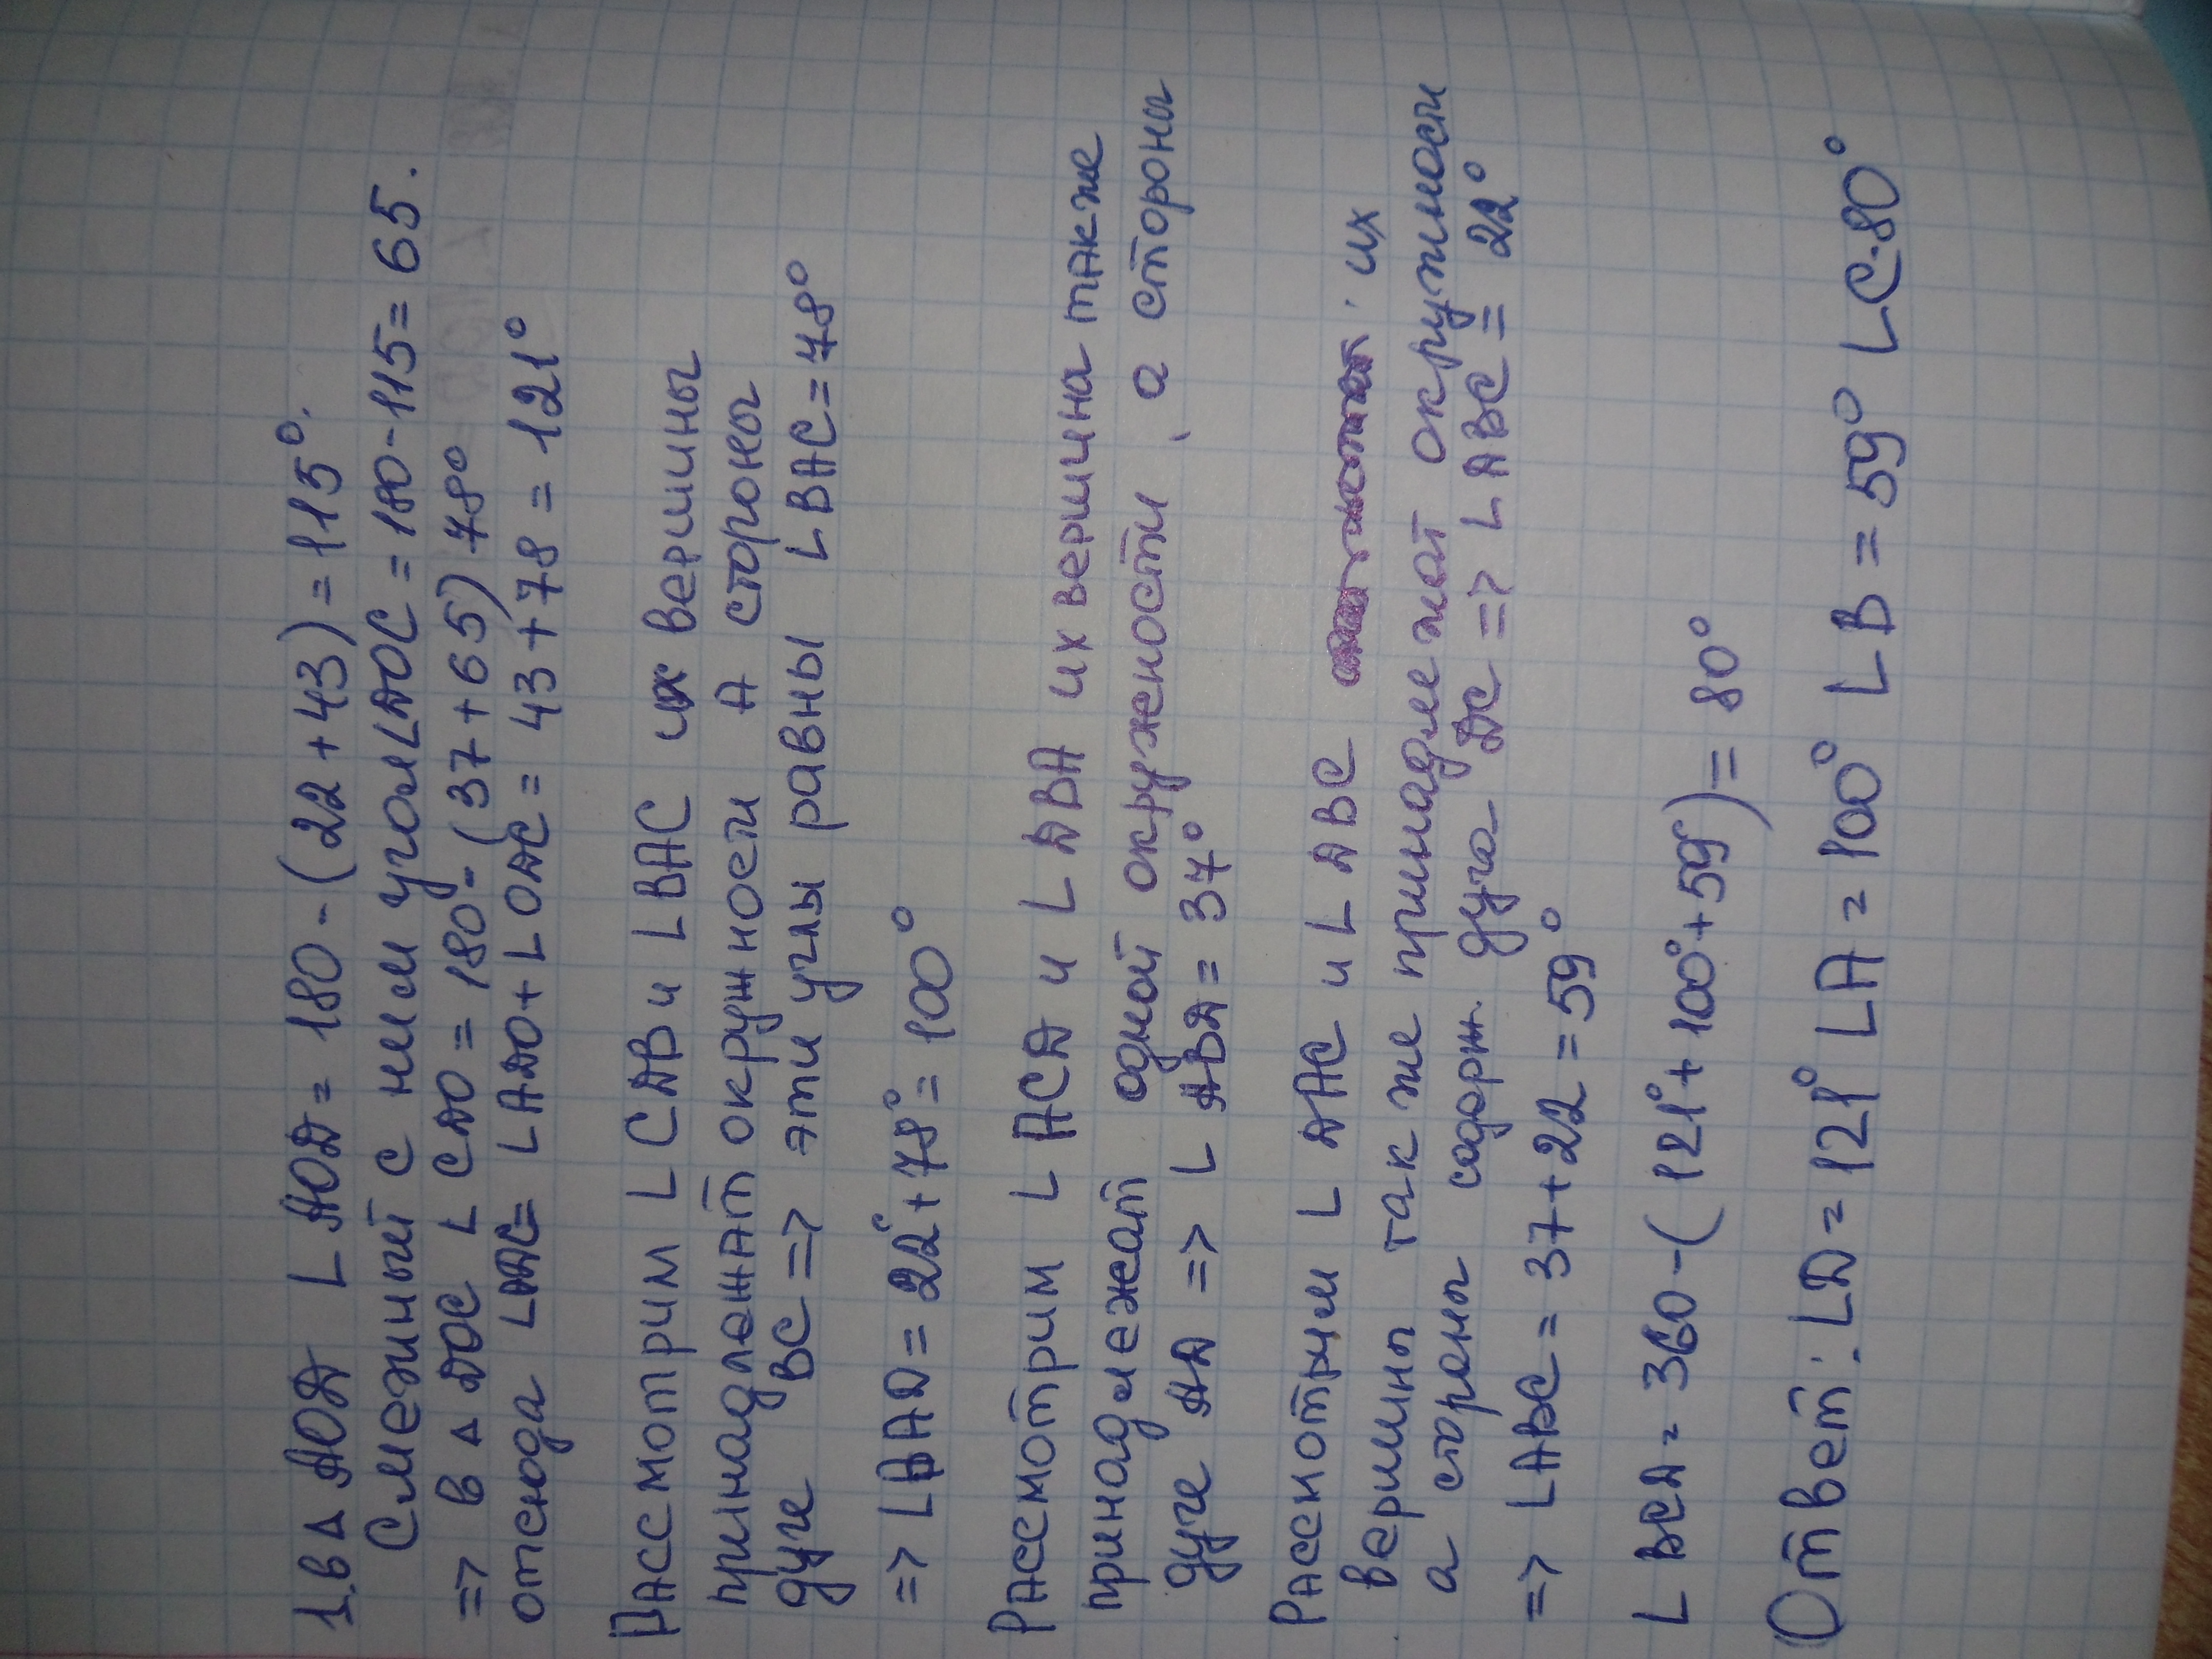 1. в △ АОД ∠АОД = 180 - (22 + 43) = 115°.
Смежный с ним угол ∠ДОС = 180 - 115 = 65.
=> в △ ДОС ∠ СДО = 180° - (37 + 65) 78°
отсюда ∠ДАС = ∠АДО + ∠ОДС = 43 + 78 = 121°
Рассмотрим ∠ СДВ и ∠ВАС их вершины
принадлежат окружности А стороны
дуге ВС => эти углы равны ∠ВАС = 78°
=> ∠ВАD = 22° + 78° = 100°
Рассмотрим ∠ АСД и ∠ ДВА их вершина также
принадлежат одной окружености, а стороны
дуге АД => ∠ АВД = 37°
Рассмотрим ∠ ДАС и ∠ ДВС их
вершины так же принадлежат окружности
а стороны содерж дуга ДС => ∠ АВС = 22°
=> ∠АВС = 37 + 22 = 59°
∠ ВСД = 360 - (121° + 100° + 59°) = 80°
Ответ: ∠Д = 121° ∠А = 100° ∠В = 59° ∠С-80°